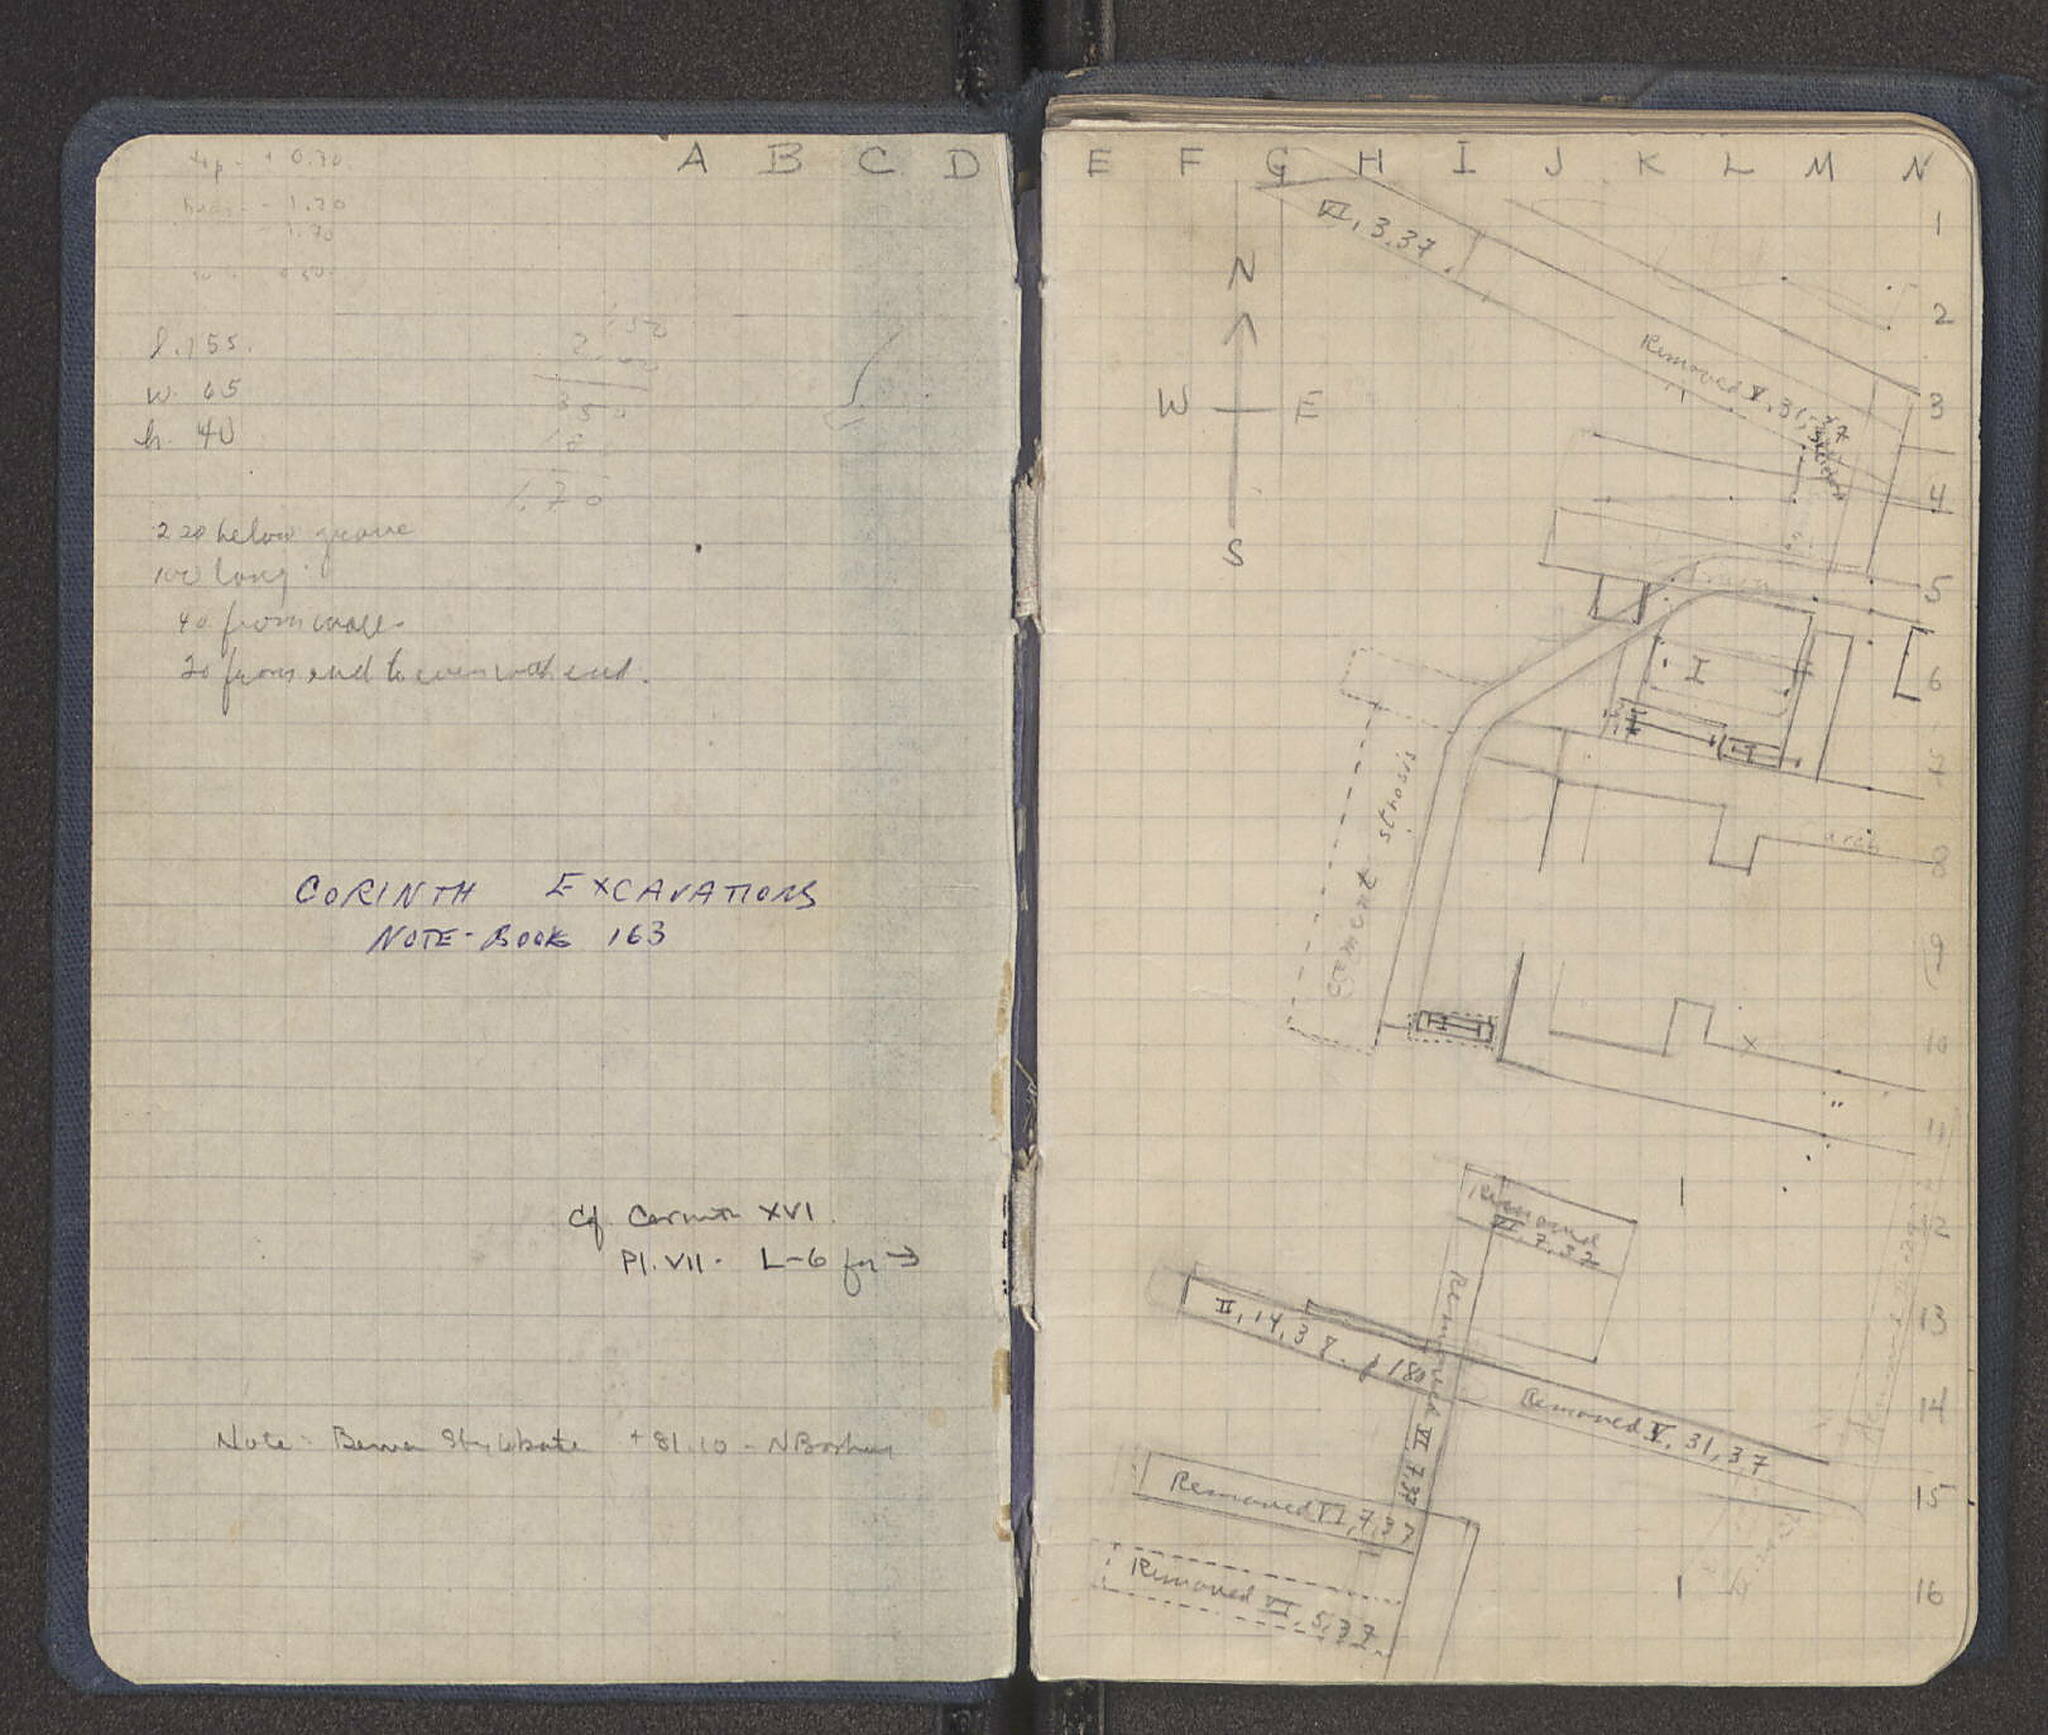 top - + 0.70
- 1.20
1.70
A B C D
l. 155.
w. 65
h. 40
150
2.00
350
18
1.70
220 below groove
100 long
40 from wall
20 from end to even with end.
CORINTH EXCAVATIONS
NOTE-BOOK 163
Cf. Corinth XVI.
Pl. VII. L-6 for →
Note: Bema Stylobate + 81.10 -
E F G H I J K L M N
1
VI, 3.37.
N
2
Removed V, 31, 37
W E
3
4
S
5
6
I
II
I
7
cement strosis
8
9
III
10
x
11
Removed
VI, 7, 37
12
13
II, 14, 37. p 180
Removed VI, 7, 37
Removed V, 31, 37
14
Removed VI, 7, 37
15
Removed VI, 5, 37
16